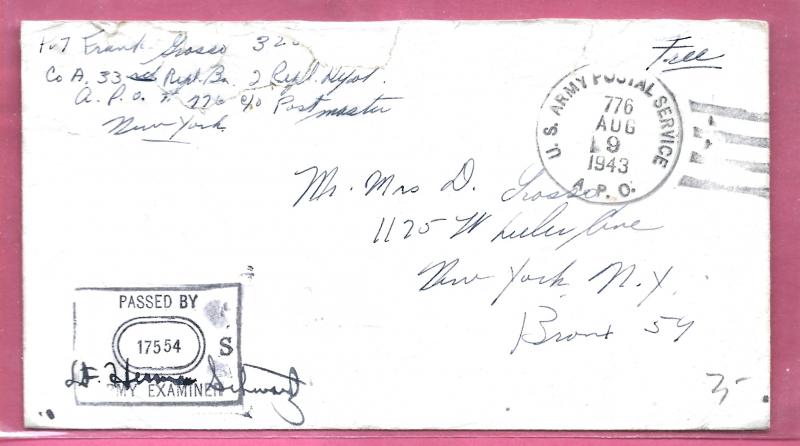 Pvt Frank Grosso 320
Co A. 33rd Repl. Bn. 2 Repl. Depot.
A.P.O. # 776 c/o Postmaster
New York
Free
U. S. ARMY POSTAL SERVICE
776
AUG
9
1943
A. P. O.
Mr. Mrs D. Grosso
1175 Wheeler Ave
New York N.Y.
Bronx 59
PASSED BY
17554
S
Lt. Herman Schwartz
MY EXAMINER